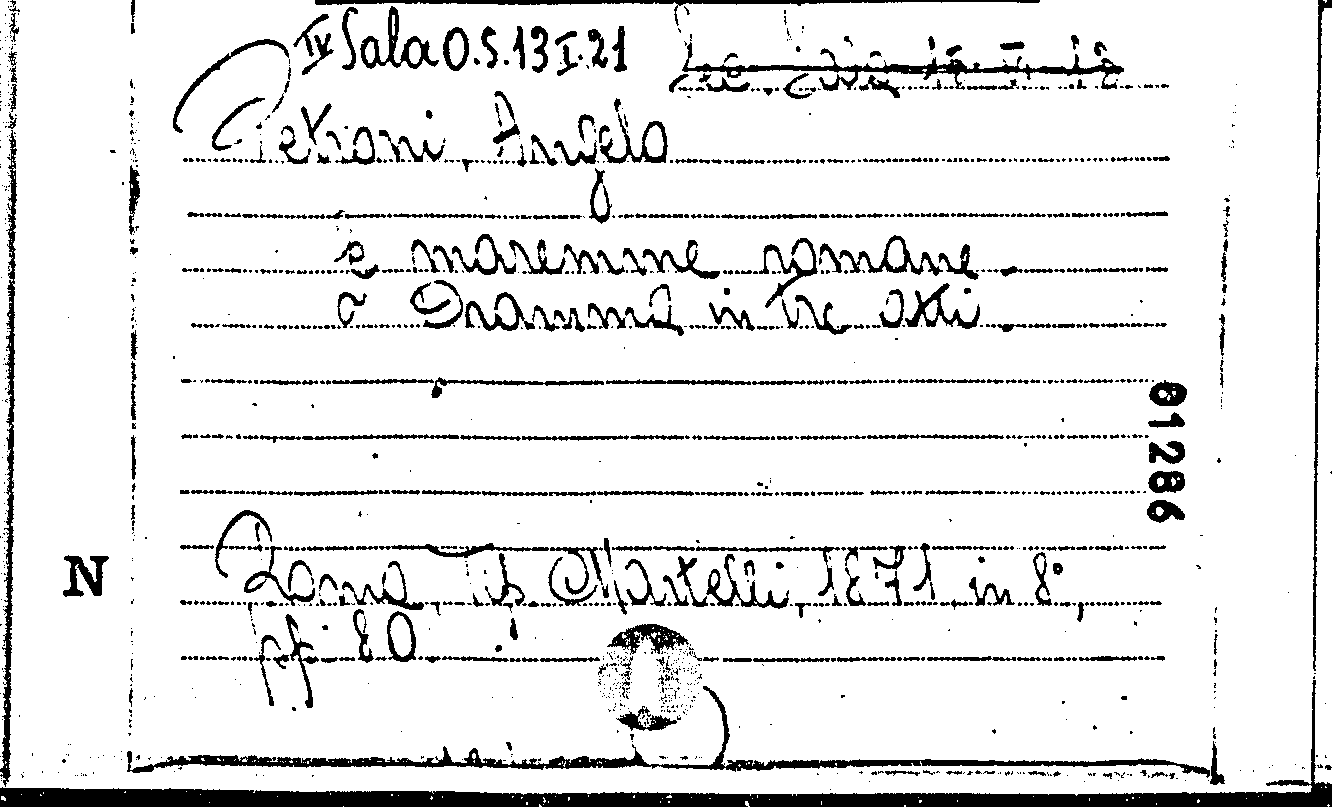 IV Sala O.S.13 I.21
Petroni, Angelo
e maremme romane.
o Dramma in tre atti.
61286
N
Roma, Tip. Martelli, 1871, in 8°,
pp. 80.